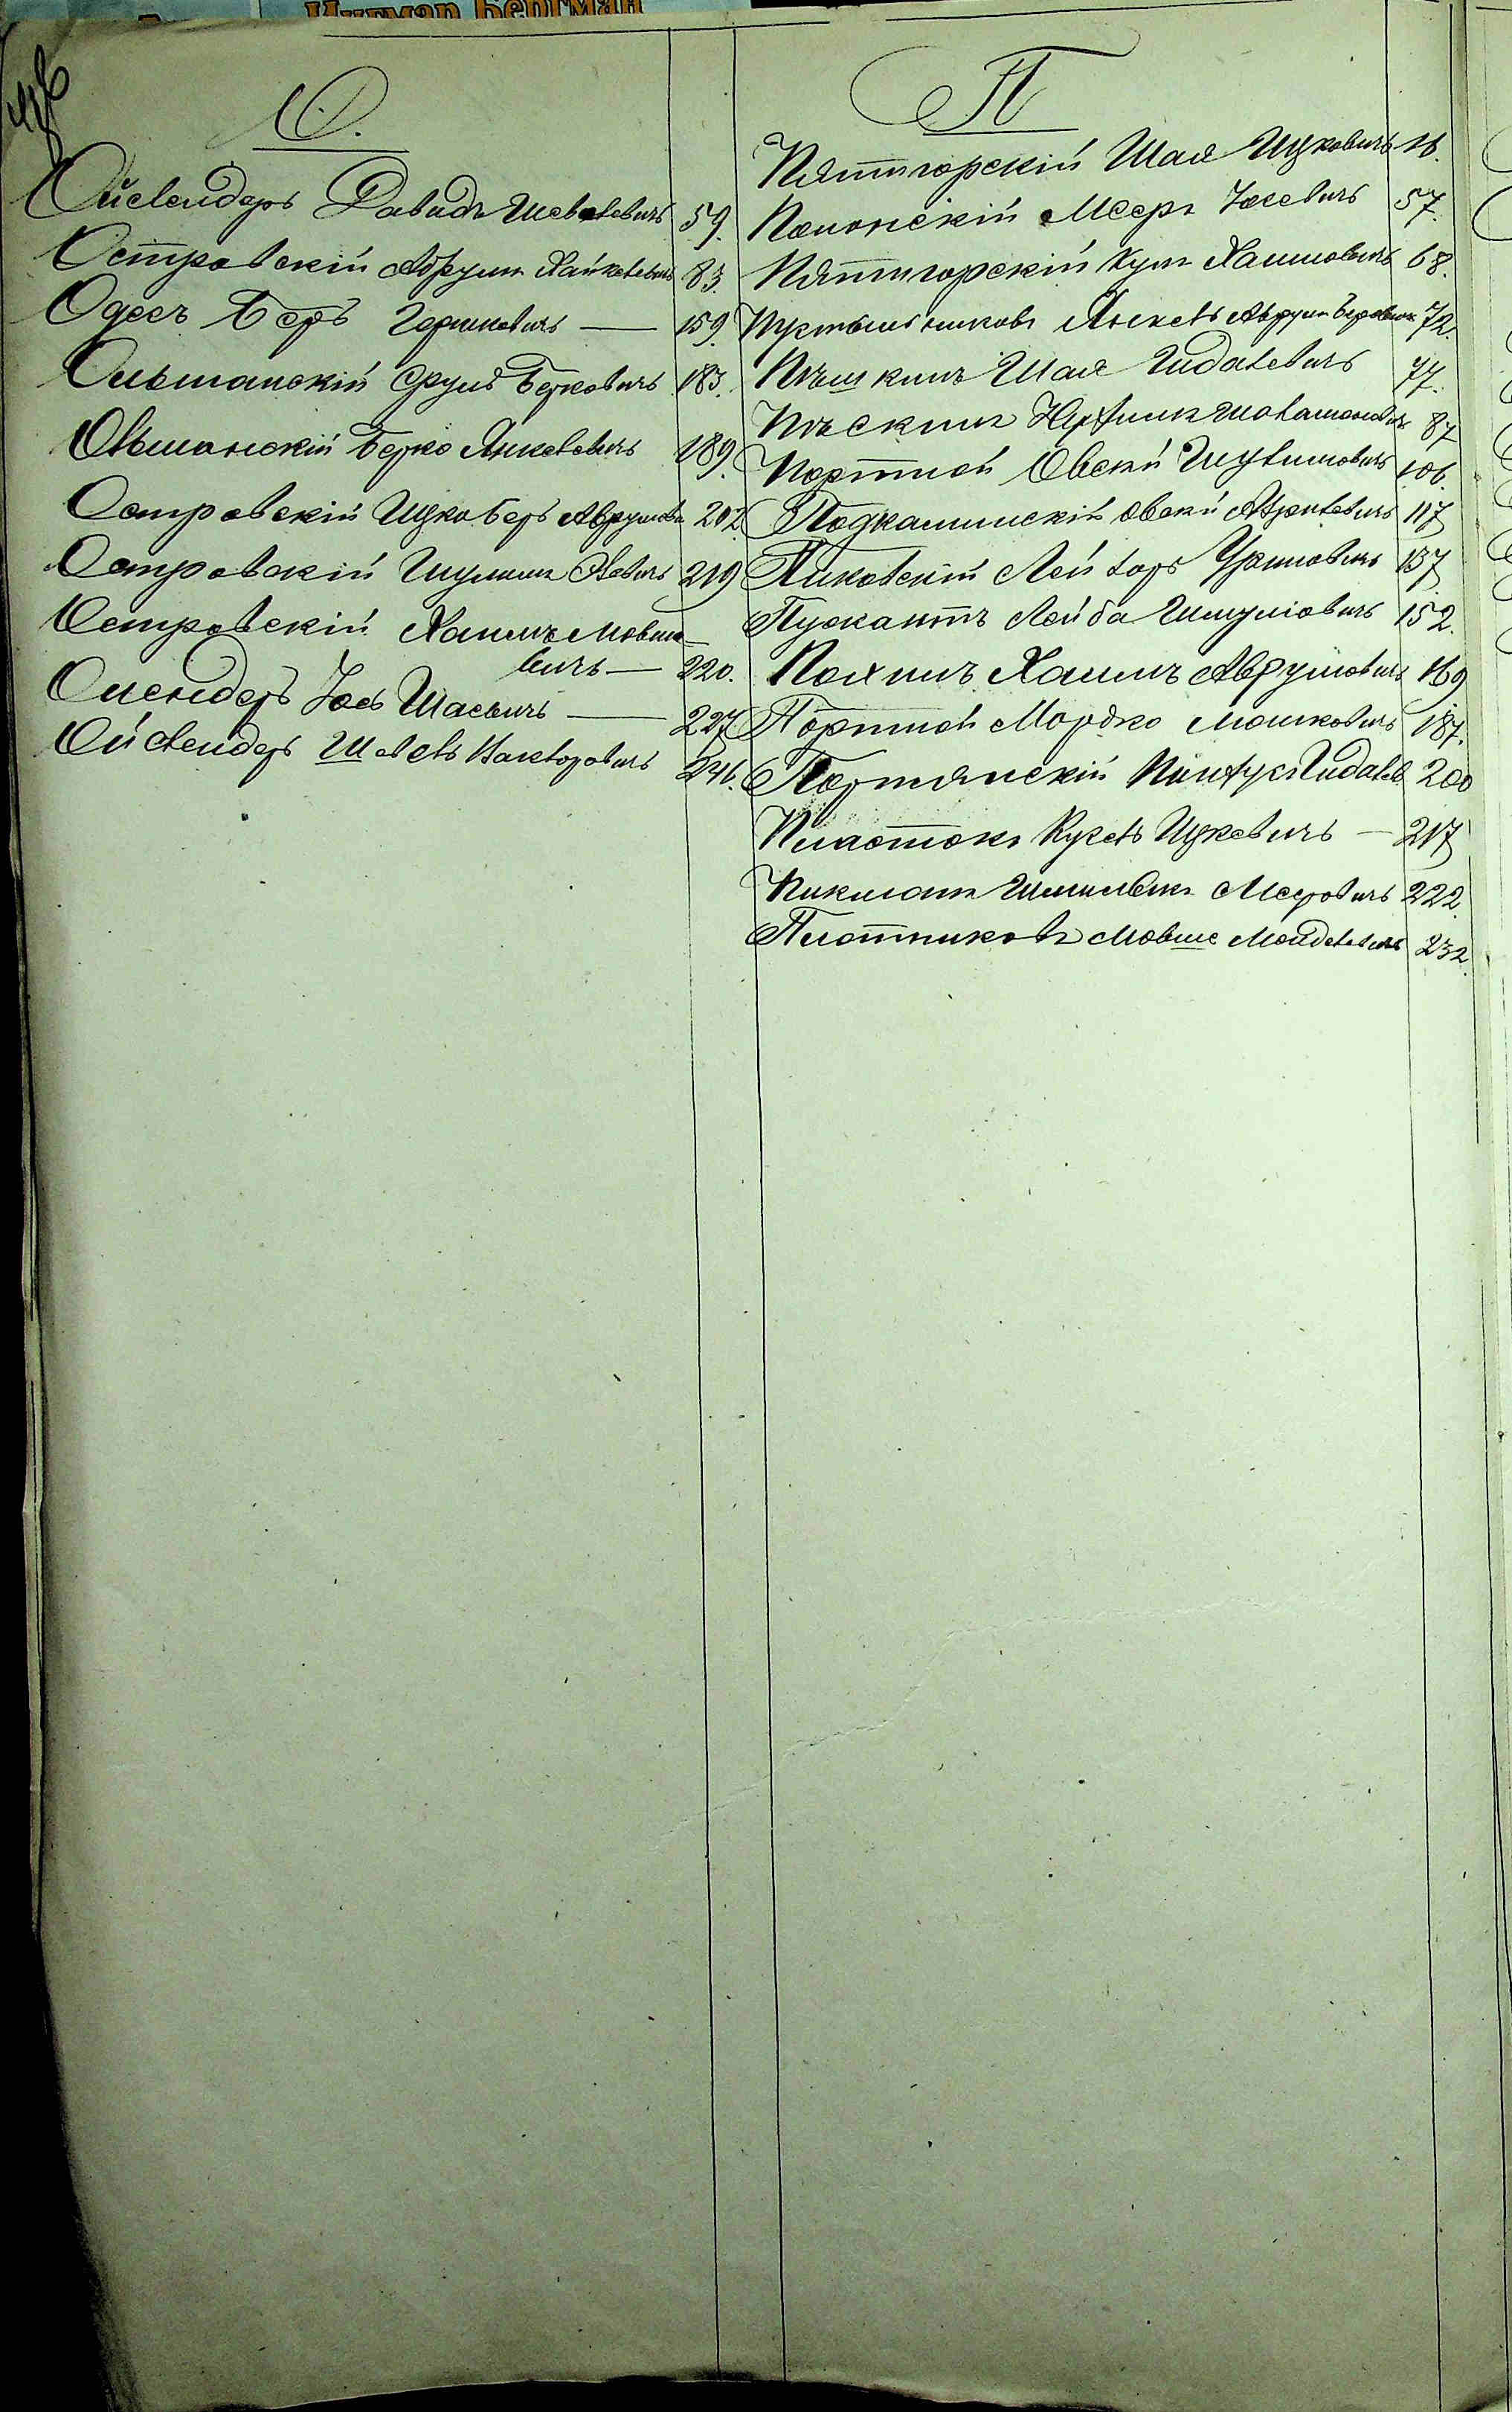 Ингмар Бергман
О.
Ойслендеръ Давидъ Шевелевичъ 59.
Островскій Абрумъ Хайкелевичъ 83.
Одесъ Беръ Гершковичъ — 159.
Ольшанскій Сруль Берковичъ 183.
Ольшанскій Берко Янкелевичъ 189.
Островскій Ицко Беръ Аврумов 202
Островскій Шулимъ 219
Островскій Хаимъ Мовшо-
вичъ — 220.
Олендеръ Іось Шаевичъ — 227
Ойслендеръ Шевель 246.
П
Пятигорскій Шая Ицковичъ 16.
Полонскій Мееръ Іосевичъ 57.
Пятигорскій Хаимовичъ 68.
Пустыльниковъ Янкель Аврумъ Беровичъ 72.
Пѣшкинъ Шая Гидалевичъ 77.
Пѣскинъ 87
Портной Овсей Шулимовичъ 106.
Подкаминскій Овсей 117
Пиковскій Лейзоръ 137
Пужантъ Лейба Шмулювичъ 152.
Полхинъ Хаимъ Аврумовичъ 169
Портной Мордко Мошковичъ 187.
Портянскій Пинхусъ Гидалев 200
Пилотокъ Кусель Ицковичъ — 217
Пикманъ Меровичъ 222.
Плотниковъ Мовше 232.